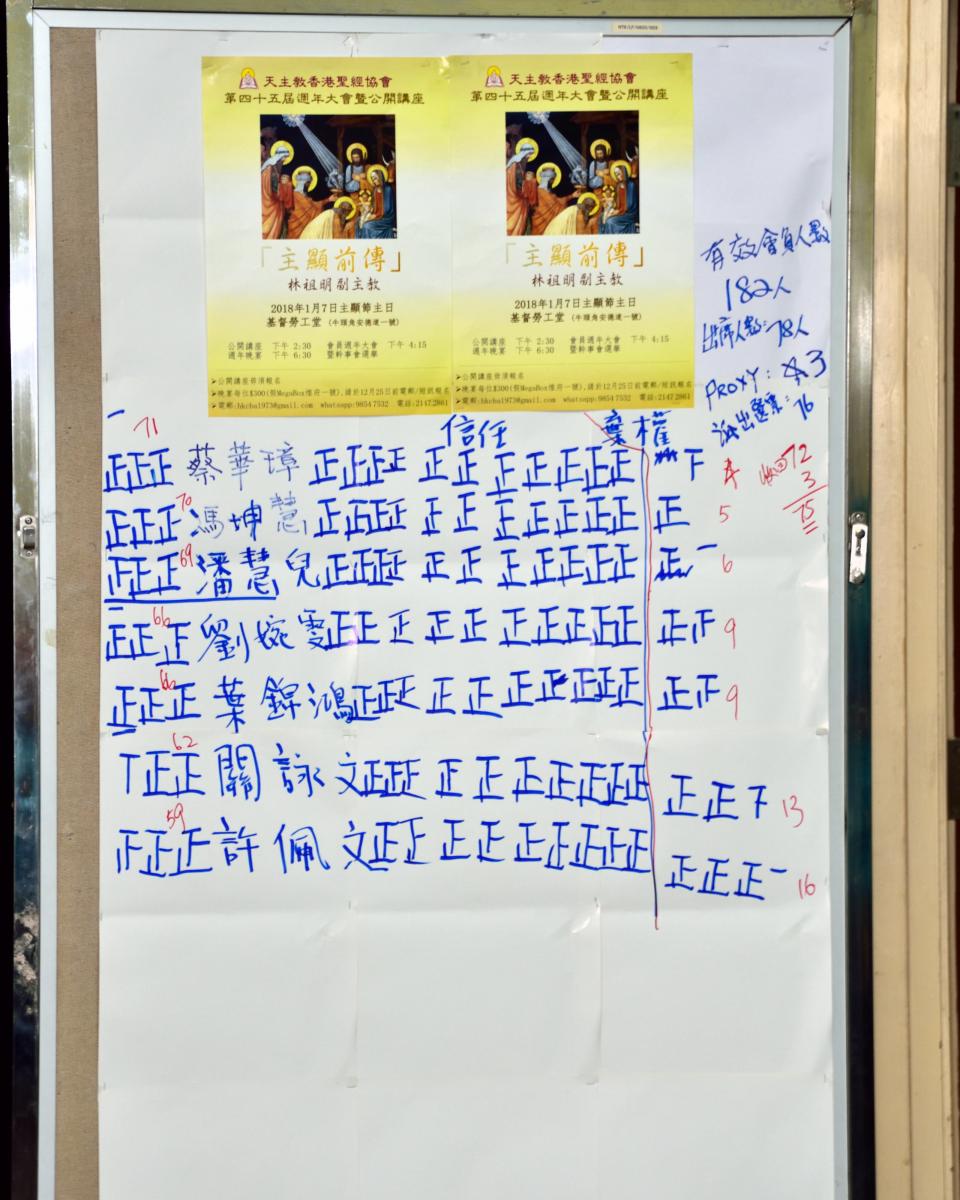 天主教香港聖經協會
第四十五屆週年大會暨公開講座
「主顯前傳」
林祖明副主教
2018年1月7日主顯節主日
基督勞工堂 (牛頭角安德道一號)
公開講座 下午 2:30 會員週年大會 下午 4:15
週年晚宴 下午 6:30 暨幹事會選舉
➤公開講座毋須報名
➤晚宴每位$300(假MegaBox煌府一號),請於12月25日前電郵/短訊報名
➤電郵:hkcba1973@gmail.com whatsapp:9854 7532 電話:2147 2861
天主教香港聖經協會
第四十五屆週年大會暨公開講座
「主顯前傳」
林祖明副主教
2018年1月7日主顯節主日
基督勞工堂 (牛頭角安德道一號)
公開講座 下午 2:30 會員週年大會 下午 4:15
週年晚宴 下午 6:30 暨幹事會選舉
➤公開講座毋須報名
➤晚宴每位$300(假MegaBox煌府一號),請於12月25日前電郵/短訊報名
➤電郵:hkcba1973@gmail.com whatsapp:9854 7532 電話:2147 2861
有效會員人數
182人
出席人數: 78人
PROXY: 3
派出選票: 76
收回 72
3
75
信任 棄權
71
正正正 蔡華璋 正正正正 正正 正正正正正 下 4
70
正正正 馮坤慧 正正正正 正正 正正正正正 正 5
69
正正正 潘慧兒 正正正正 正正 正正正正正 正一 6
66
正正正 劉婉雯 正正正 正正 正正正正正 正正 9
66
正正正 葉錦鴻 正正正 正正 正正正正正 正正 9
62
丅正正 關詠文 正正正 正正 正正正正正 正正下 13
59
正正正 許佩文 正正 正正 正正正正正 正正正一 16